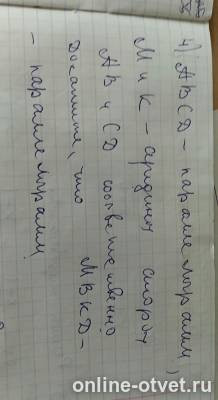 4) ABCD - параллелограмм,
M и K - середины сторон
AB и CD соответственно
Докажите, что MBKD -
- параллелограмм
online-otvet.ru